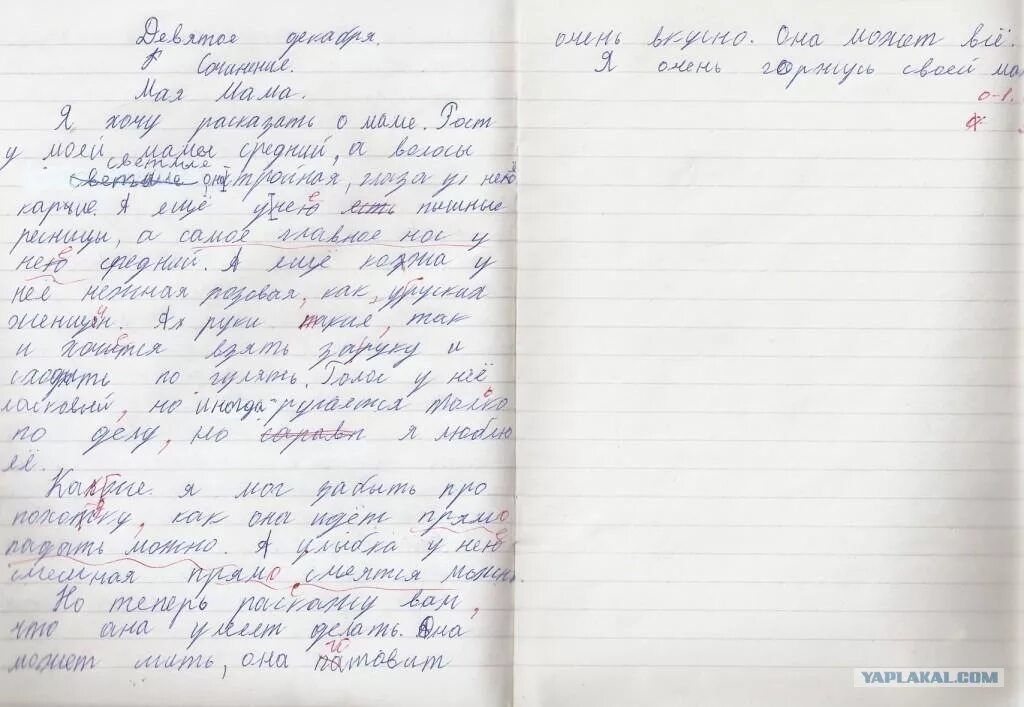 Девятое декабря.
Р Сочинение.
Мая Мама.
Я хочу расказать о маме. Рост
у моей мамы средний, а волосы
светлые
она стройная, глаза у неё
карие. А ещё у неё есть пышные
ресницы, а самое главное нос у
неё средний. А ещё кожа у
неё нежная розовая, как у руских
женщин. Ах руки такие, так
и хочется взять за руку и
сходить по гулять. Голос у неё
ласковый, но иногда ругается только
по делу, но я люблю
её.
Как я мог забыть про
походку, как она идёт прямо
падать можно. А улыбка у неё
смешная прямо смеятся можно.
Но теперь раскажу вам,
что она умеет делать. Она
может мыть, она готовит
очень вкусно. Она может всё.
Я очень горжусь своей ма
о-1.
YAPLAKAL.COM